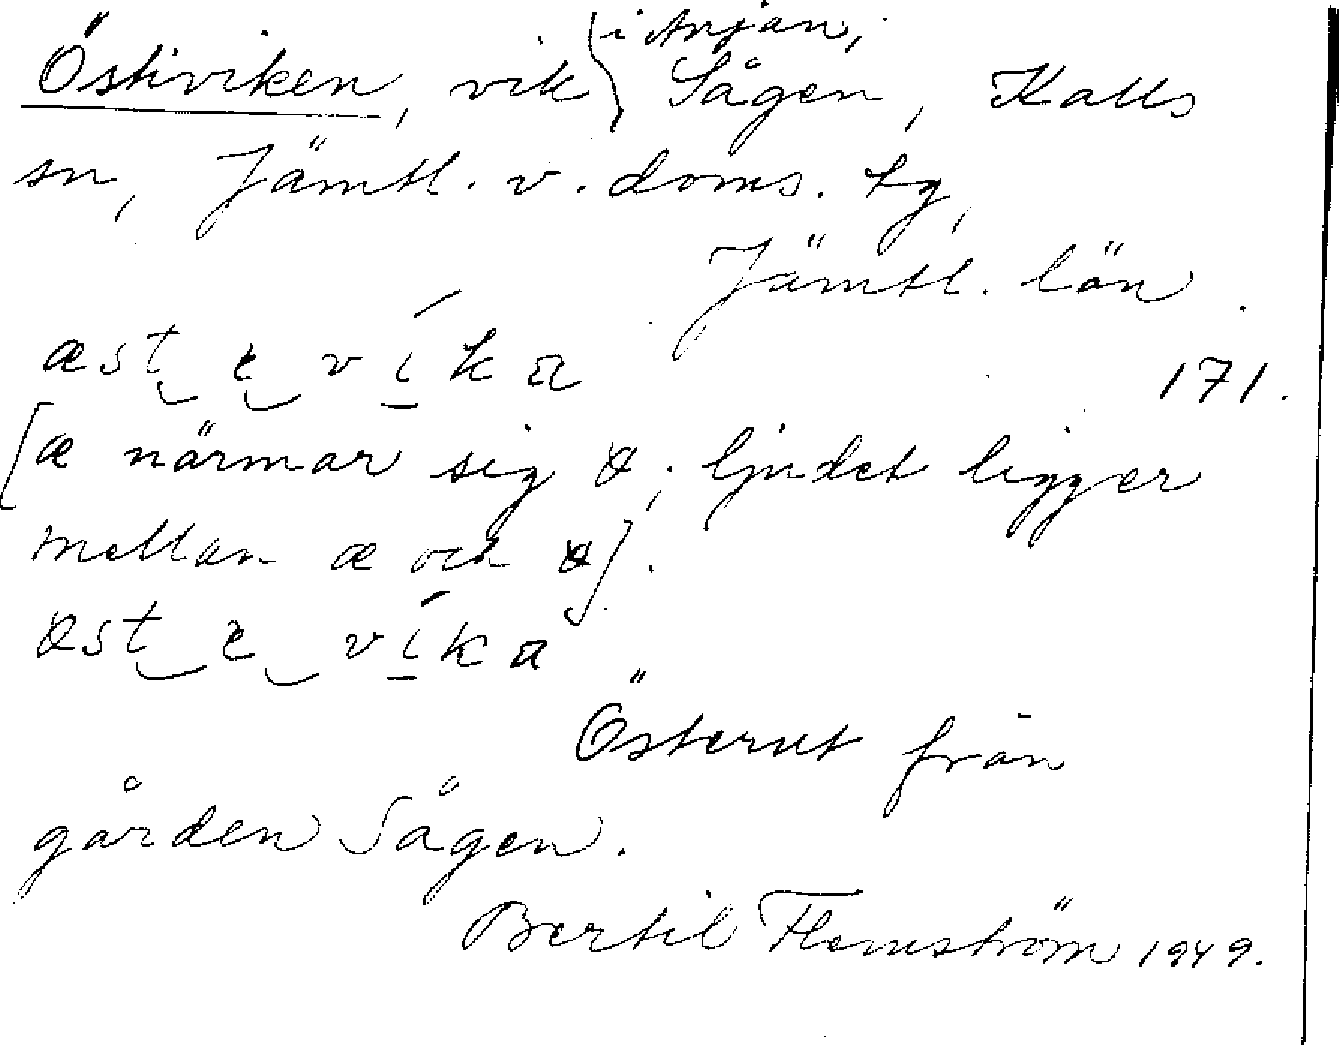 Östiviken, vik i Anjan, Sågen, Kalls
sn, Jämtl. v. doms. tg,
Jämtl. län.
æst e víka
171.
[æ närmar sig ꞩ; ljudet ligger
mellan æ och ꞩ].
e víka
Österut från
gården Sågen.
Bertil Flemström 1949.